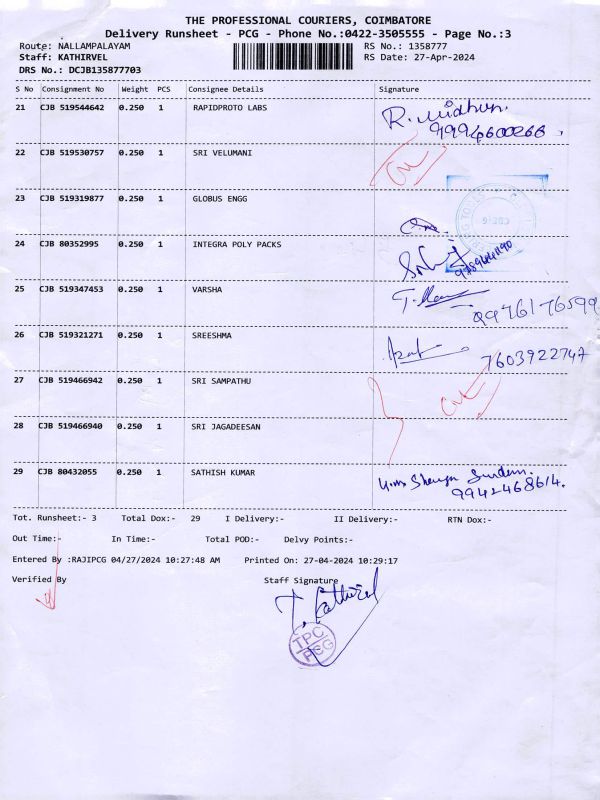 THE PROFESSIONAL COURIERS, COIMBATORE
Delivery Runsheet - PCG - Phone No.:0422-3505555 - Page No.:3
Route: NALLAMPALAYAM RS No.: 1358777
Staff: KATHIRVEL RS Date: 27-Apr-2024
DRS No.: DCJB135877703
S No Consignment No Weight PCS Consignee Details Signature
21 CJB 519544642 0.250 1 RAPIDPROTO LABS R. Midhun.
9994600266.
22 CJB 519530757 0.250 1 SRI VELUMANI
23 CJB 519319877 0.250 1 GLOBUS ENGG
24 CJB 80352995 0.250 1 INTEGRA POLY PACKS
25 CJB 519347453 0.250 1 VARSHA
9976176599
26 CJB 519321271 0.250 1 SREESHMA
7603922747
27 CJB 519466942 0.250 1 SRI SAMPATHU
28 CJB 519466940 0.250 1 SRI JAGADEESAN
29 CJB 80432055 0.250 1 SATHISH KUMAR
9942468614.
Tot. Runsheet:- 3 Total Dox:- 29 I Delivery:- II Delivery:- RTN Dox:-
Out Time:- In Time:- Total POD:- Delvy Points:-
Entered By :RAJIPCG 04/27/2024 10:27:48 AM Printed On: 27-04-2024 10:29:17
Verified By Staff Signature
T. Kathirvel
TPC
PCG